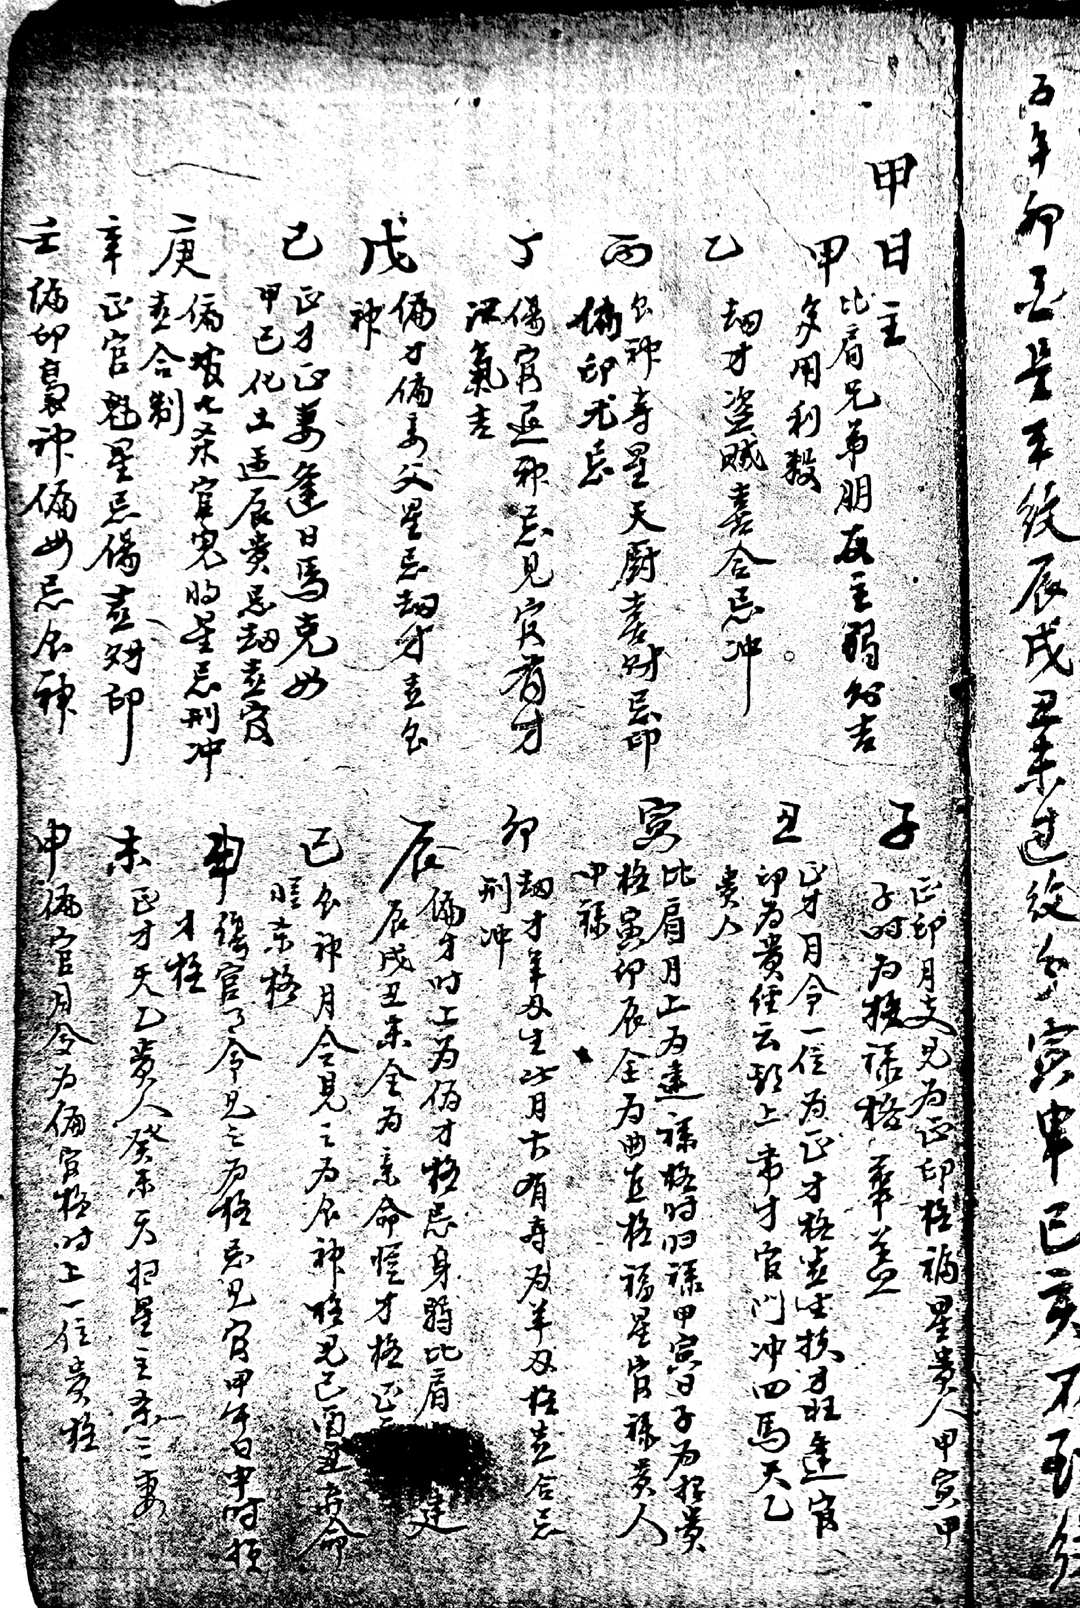 子午卯酉是平紋辰戌丑未过紋身寅申巳亥不到紋
甲日主
甲
比肩兄弟朋友主弱幼吉
多用利殺
乙
劫才盜賊喜合忌冲
丙
食神寿星天厨喜財忌印
偏印尤忌
丁
傷官退神忌見官有才
洩氣吉
戊
偏才偏妻父星忌劫才喜食
神
己
正才正妻逢日馬克母
甲己化土逢辰貴忌劫喜官
庚
偏官七杀官鬼将星忌刑冲
喜合制
辛
正官魁星忌傷喜財印
壬
偏印梟神偏母忌食神
子
正印月支見为正印格福星貴人甲寅甲
子时为禄格 華盖
丑
正才月令一位为正才格喜生扶才旺逢官
印为貴經云 上 才官门冲四馬天乙
貴人
寅
比肩月上为建禄格时归禄甲寅日子为 貴
格寅卯辰全为曲直格福星官禄貴人
甲禄
卯
劫才羊刃生此月才有 为羊刃格喜合忌
刑冲
辰
偏才时上为偏才格忌身弱比肩 建
辰戌丑未全为 命 才格正
巳
食神月令見之为食神格見巳酉丑 命
杀格
傷官月令見之为格忌見官甲午日申时
才格
未
正才天乙貴人癸未天 星主 三妻
申
偏官月令为偏官格时上一位貴格